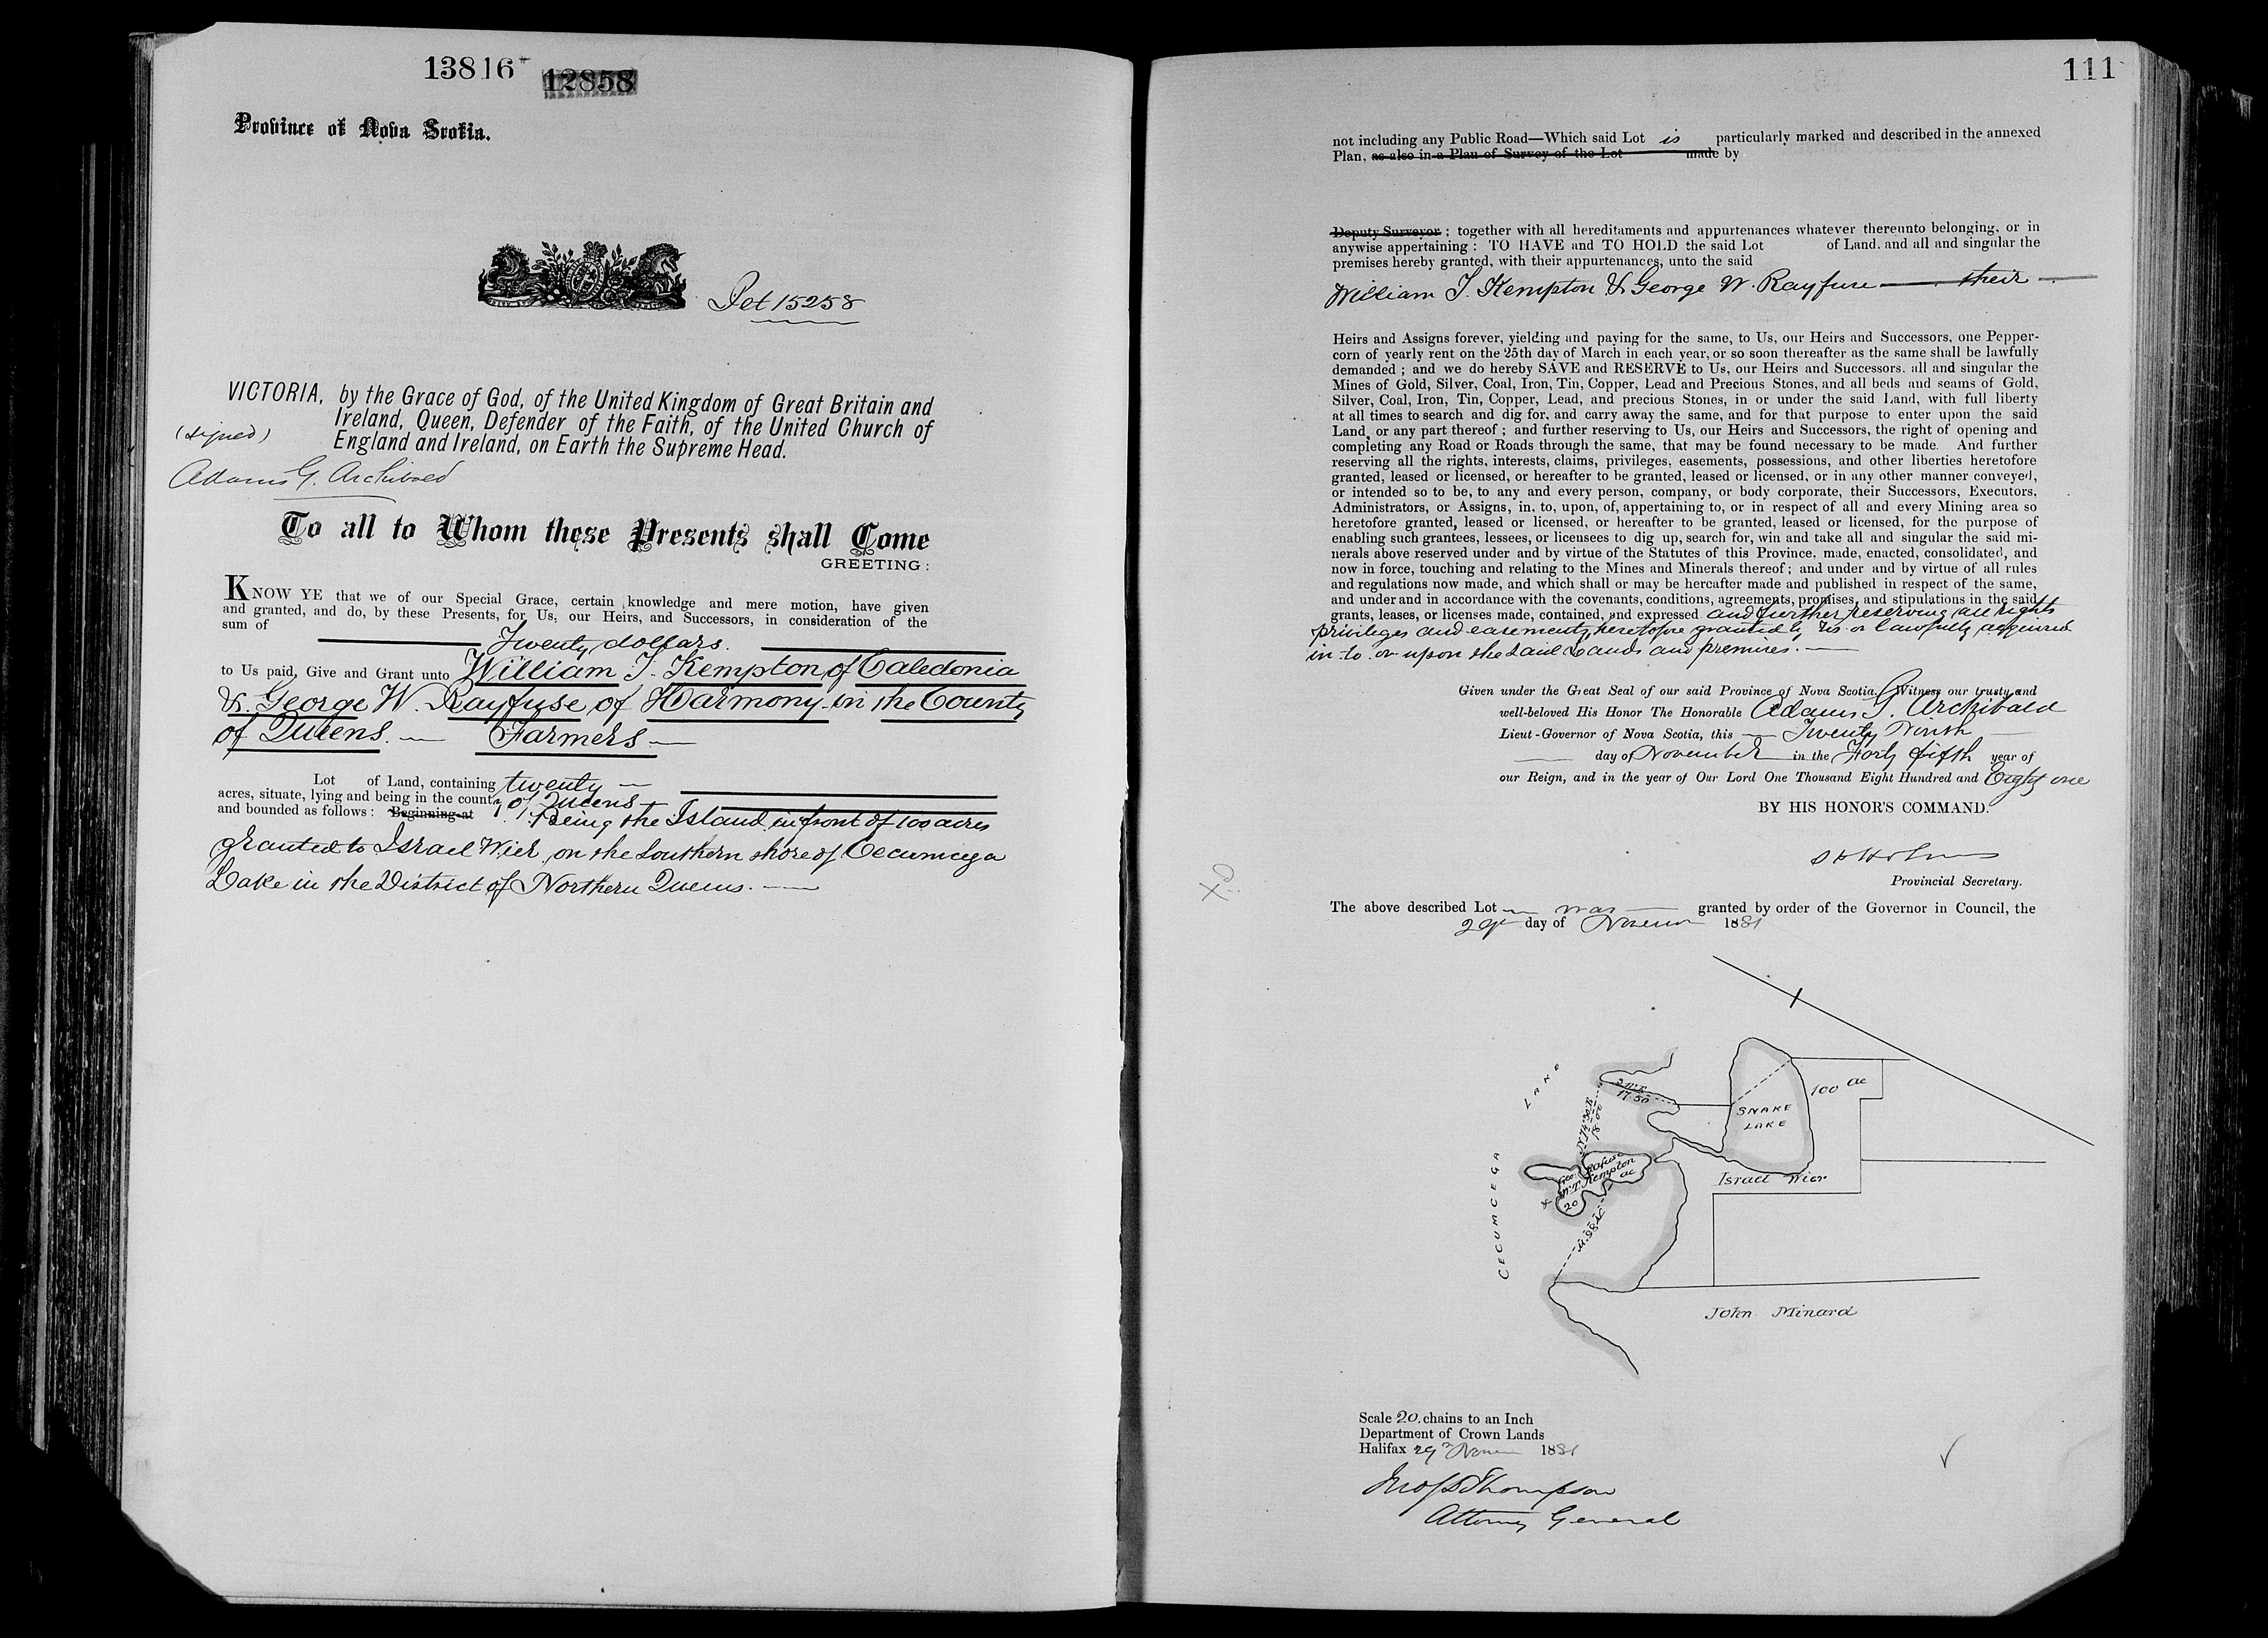 13816
12858
Province of Nova Scotia.
Pet 15258
VICTORIA, by the Grace of God, of the United Kingdom of Great Britain and
Ireland, Queen, Defender of the Faith, of the United Church of
England and Ireland, on Earth the Supreme Head.
(signed)
Adams G. Archibald
To all to Whom these Presents shall Come
GREETING:
KNOW YE that we of our Special Grace, certain knowledge and mere motion, have given
and granted, and do, by these Presents, for Us, our Heirs, and Successors, in consideration of the
sum of
Twenty dollars.
to Us paid, Give and Grant unto William T. Kempton of Caledonia
& George W. Rayfuse of Harmony in the County
of Queens. — Farmers —
Lot of Land, containing twenty —
acres, situate, lying and being in the county of Queens —
and bounded as follows: Beginning at Being the Island in front of 100 acres
granted to Israel Wier on the Southern shore of Cecumcega
Lake in the District of Northern Queens. —
111
not including any Public Road—Which said Lot is particularly marked and described in the annexed
Plan, as also in a Plan of Survey of the Lot made by
Deputy Surveyor; together with all hereditaments and appurtenances whatever thereunto belonging, or in
anywise appertaining: TO HAVE and TO HOLD the said Lot of Land. and all and singular the
premises hereby granted, with their appurtenances, unto the said
William T. Kempton & George W. Rayfuse — their —
Heirs and Assigns forever, yielding and paying for the same, to Us, our Heirs and Successors, one Pepper-
corn of yearly rent on the 25th day of March in each year, or so soon thereafter as the same shall be lawfully
demanded; and we do hereby SAVE and RESERVE to Us, our Heirs and Successors, all and singular the
Mines of Gold, Silver, Coal, Iron, Tin, Copper, Lead and Precious Stones, and all beds and seams of Gold,
Silver, Coal, Iron, Tin, Copper, Lead, and precious Stones, in or under the said Land, with full liberty
at all times to search and dig for, and carry away the same, and for that purpose to enter upon the said
Land, or any part thereof; and further reserving to Us, our Heirs and Successors, the right of opening and
completing any Road or Roads through the same, that may be found necessary to be made. And further
reserving all the rights, interests, claims, privileges, easements, possessions, and other liberties heretofore
granted, leased or licensed, or hereafter to be granted, leased or licensed, or in any other manner conveyed,
or intended so to be, to any and every person, company, or body corporate, their Successors, Executors,
Administrators, or Assigns, in, to, upon, of, appertaining to, or in respect of all and every Mining area so
heretofore granted, leased or licensed, or hereafter to be granted, leased or licensed, for the purpose of
enabling such grantees, lessees, or licensees to dig up, search for, win and take all and singular the said mi-
nerals above reserved under and by virtue of the Statutes of this Province, made, enacted, consolidated, and
now in force, touching and relating to the Mines and Minerals thereof; and under and by virtue of all rules
and regulations now made, and which shall or may be hereafter made and published in respect of the same,
and under and in accordance with the covenants, conditions, agreements, promises, and stipulations in the said
grants, leases, or licenses made, contained, and expressed and further reserving all rights
privileges and easements heretofore granted by Us or lawfully acquired
in to or upon the said Lands and premises. —
Given under the Great Seal of our said Province of Nova Scotia. Witness our trusty and
well-beloved His Honor The Honorable Adams G. Archibald
Lieut-Governor of Nova Scotia, this — Twenty Ninth —
day of November in the Forty fifth year of
our Reign, and in the year of Our Lord One Thousand Eight Hundred and Eighty one
BY HIS HONOR'S COMMAND.
S H Holmes
Provincial Secretary.
The above described Lot — was — granted by order of the Governor in Council, the
29th day of Novem 1881
LAKE
CECUMCEGA
17 50
N 14° 30 E
18 00
SNAKE
LAKE
100 ac
Geo. Rafuse
W. T. Kempton
20 ac
Israel Wier
John Minard
Scale 20 chains to an Inch
Department of Crown Lands
Halifax 29th Novem 1881
Jno S D Thompson
Attorney General